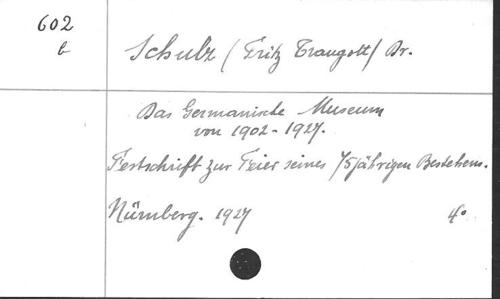 602
b
Schulz (Fritz Traugott) Dr.
Das Germanische Museum
von 1902-1927.
Festschrift zur Feier seines 75jährigen Bestehens.
Nürnberg. 1927
4°